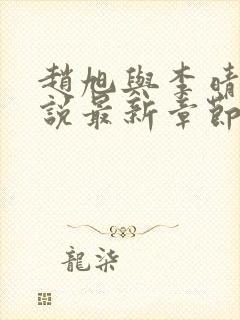 趙旭與李晴
說最新章節
龍柒